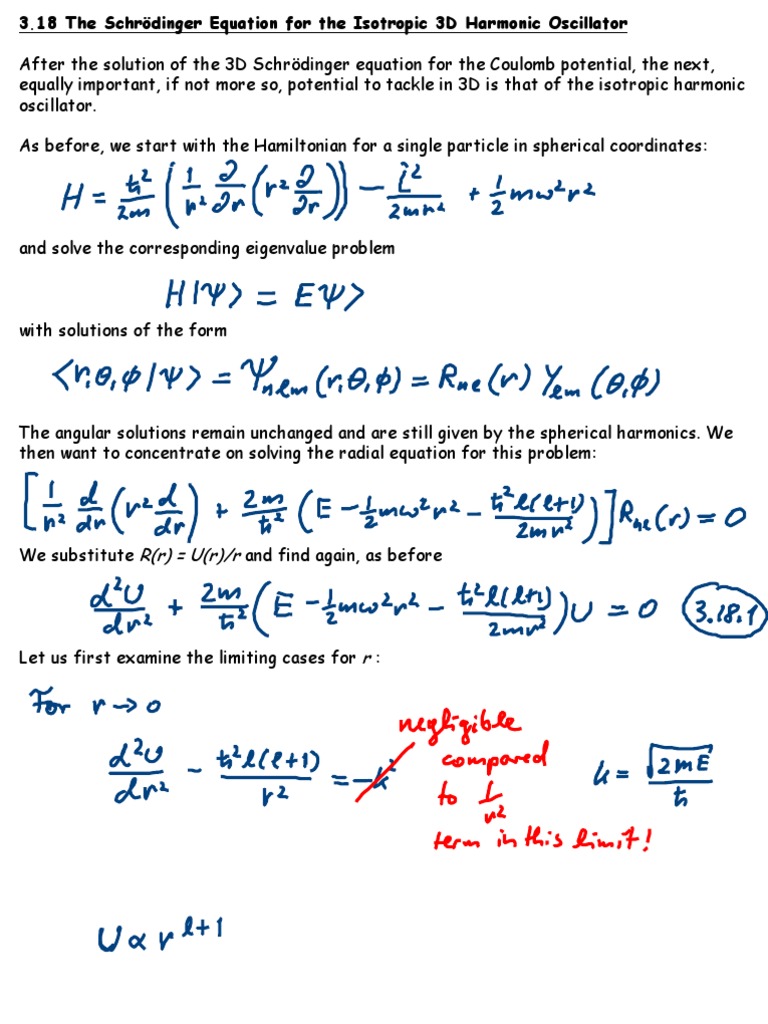 3.18 The Schrödinger Equation for the Isotropic 3D Harmonic Oscillator
After the solution of the 3D Schrödinger equation for the Coulomb potential, the next,
equally important, if not more so, potential to tackle in 3D is that of the isotropic harmonic
oscillator.
As before, we start with the Hamiltonian for a single particle in spherical coordinates:
H = ℏ²/2m (1/r² ∂/∂r (r² ∂/∂r)) − L̂²/2mr² + 1/2 mω²r²
and solve the corresponding eigenvalue problem
H|Ψ> = EΨ>
with solutions of the form
<r,θ,φ|Ψ> = Ψnlm (r,θ,φ) = Rnl (r) Ylm (θ,φ)
The angular solutions remain unchanged and are still given by the spherical harmonics. We
then want to concentrate on solving the radial equation for this problem:
[1/r² d/dr (r² d/dr) + 2m/ℏ² (E − 1/2 mω²r² − ℏ²l(l+1)/2mr²)] Rnl(r) = 0
We substitute R(r) = U(r)/r and find again, as before
d²U/dr² + 2m/ℏ² (E − 1/2 mω²r² − ℏ²l(l+1)/2mr²) U = 0 3.18.1
Let us first examine the limiting cases for r :
For r → 0
d²U/dr² − ℏ²l(l+1)/r² = −k² k = √2mE/ℏ
negligible
compared
to 1/r²
term in this limit!
U ∝ r^l+1